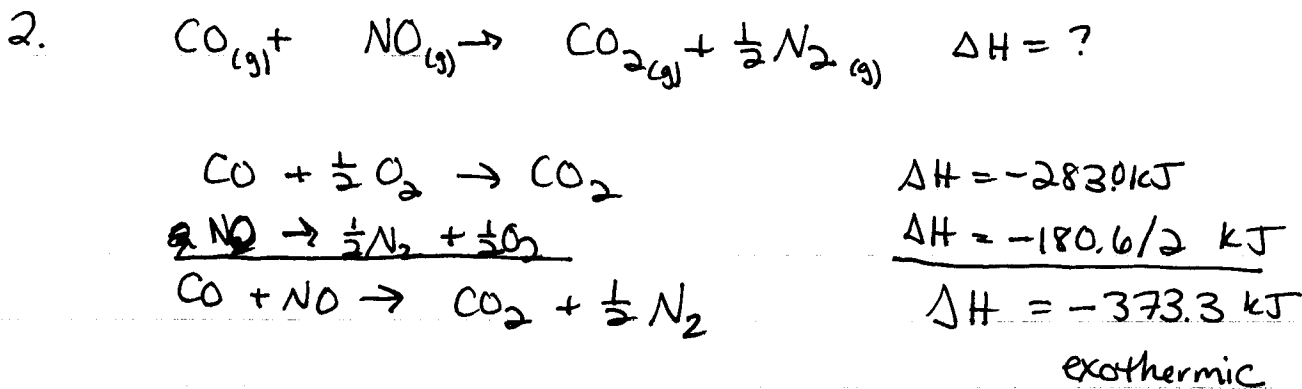 2. CO(g) + NO(g) → CO₂(g) + ½ N₂(g) ΔH = ?
CO + ½ O₂ → CO₂ ΔH = -283.0 kJ
NO → ½ N₂ + ½ O₂ ΔH = -180.6/2 kJ
CO + NO → CO₂ + ½ N₂ ΔH = -373.3 kJ
exothermic